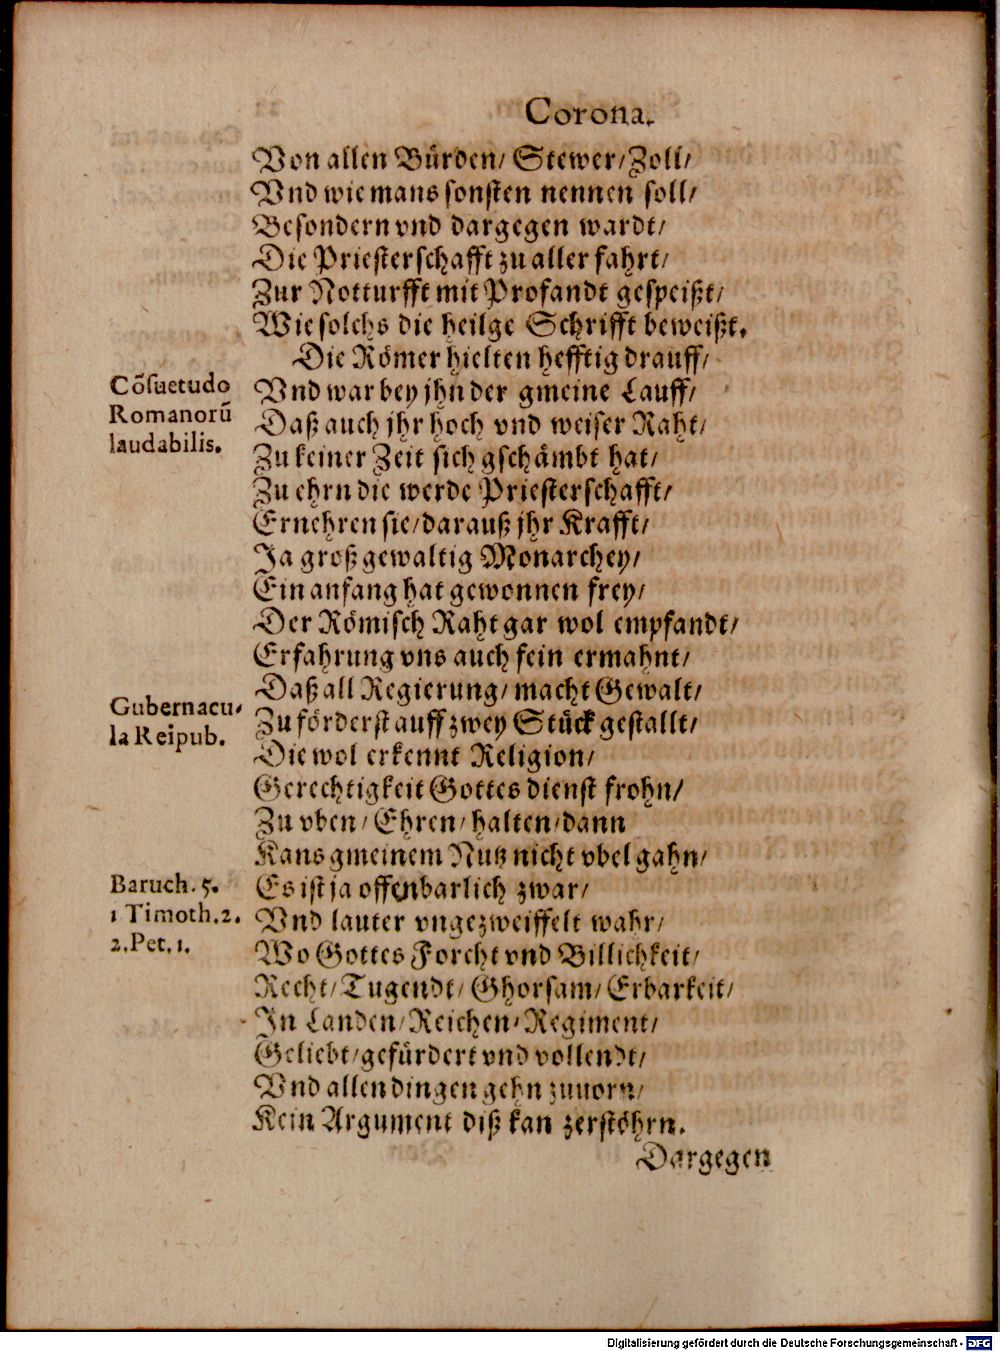 Corona.
Von allen Bürden/ Stewer/ Zoll/
Vnd wie mans sonsten nennen soll/
Besondern vnd dargegen wardt/
Die Priesterschafft zu aller fahrt/
Zur Notturfft mit Profandt gespeißt/
Wie solchs die heilge Schrifft beweißt.
Die Römer hielten hefftig drauff/
Cõsuetudo
Romanorũ
laudabilis.
Vnd war bey jhn der gmeine Lauff/
Daß auch jhr hoch vnd weiser Raht/
Zu keiner Zeit sich gschämbt hat/
Zu ehrn die werde Priesterschafft/
Ernehren sie/ darauß jhr Krafft/
Ja groß gewaltig Monarchey/
Ein anfang hat gewonnen frey/
Der Römisch Raht gar wol empfandt/
Erfahrung vns auch fein ermahnt/
Daß all Regierung/ macht Gewalt/
Gubernacu-
la Reipub.
Zu förderst auff zwey Stück gestallt/
Die wol erkennt Religion/
Gerechtigkeit Gottes dienst frohn/
Zu vben/ Ehren/ halten/ dann
Kans gmeinem Nutz nicht vbel gahn/
Baruch. 5.
1 Timoth. 2.
2. Pet. 1.
Es ist ja offenbarlich zwar/
Vnd lauter vngezweiffelt wahr/
Wo Gottes Forcht vnd Billichkeit/
Recht/ Tugendt/ Ghorsam/ Erbarkeit/
In Landen/ Reichen/ Regiment/
Geliebt/ gefürdert vnd vollendt/
Vnd allen dingen gehn zuuorn/
Kein Argument diß kan zerstöhrn.
Dargegen
Digitalisierung gefördert durch die Deutsche Forschungsgemeinschaft - DFG